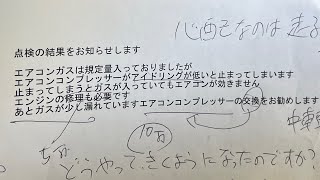 心配なのは 走る
点検の結果をお知らせします
エアコンガスは規定量入っておりましたが
エアコンコンプレッサーがアイドリングが低いと止まってしまいます
止まってしまうとガスが入っていてもエアコンが効きません
エンジンの修理も必要です
あとガスが少し漏れていますエアコンコンプレッサーの交換をお勧めします
10万
中車
どうやって、きくようになったのですか?